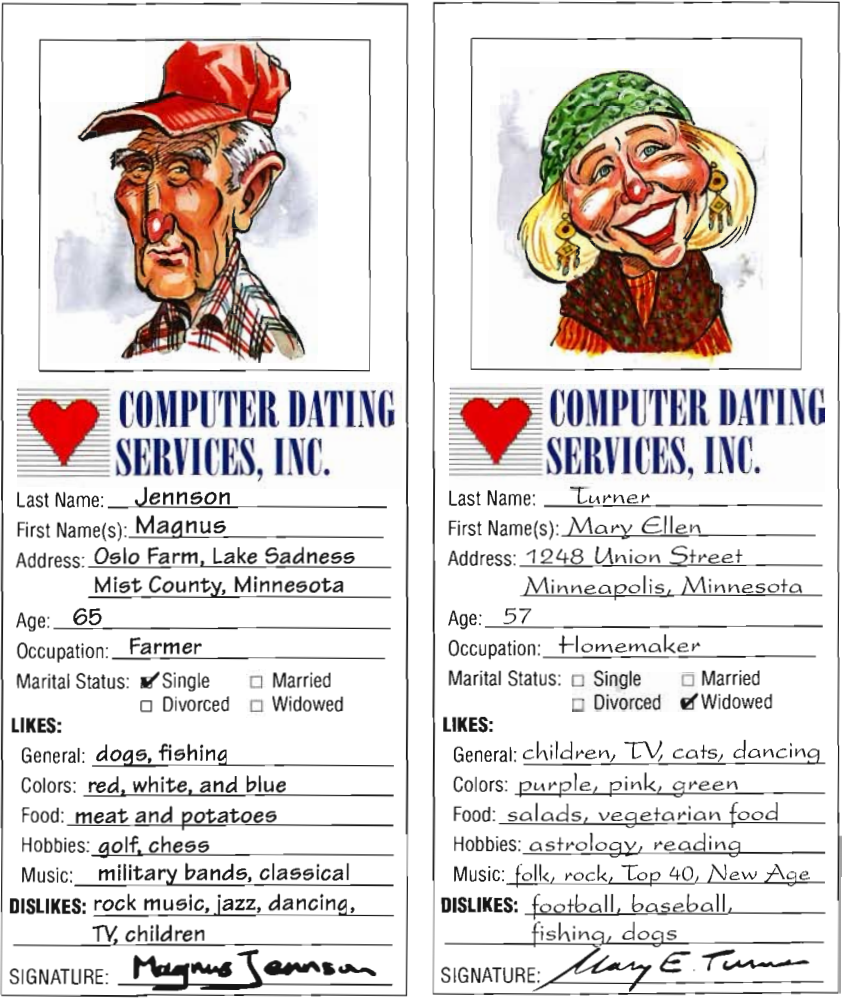 COMPUTER DATING
SERVICES, INC.
Last Name: Jennson
First Name(s): Magnus
Address: Oslo Farm, Lake Sadness
Mist County, Minnesota
Age: 65
Occupation: Farmer
Marital Status: ✔ Single □ Married
□ Divorced □ Widowed
LIKES:
General: dogs, fishing
Colors: red, white, and blue
Food: meat and potatoes
Hobbies: golf, chess
Music: military bands, classical
DISLIKES: rock music, jazz, dancing,
TV, children
SIGNATURE: Magnus Jennson
COMPUTER DATING
SERVICES, INC.
Last Name: Turner
First Name(s): Mary Ellen
Address: 1248 Union Street
Minneapolis, Minnesota
Age: 57
Occupation: Homemaker
Marital Status: □ Single □ Married
□ Divorced ✔ Widowed
LIKES:
General: children, TV, cats, dancing
Colors: purple, pink, green
Food: salads, vegetarian food
Hobbies: astrology, reading
Music: folk, rock, Top 40, New Age
DISLIKES: football, baseball,
fishing, dogs
SIGNATURE: Mary E. Turner